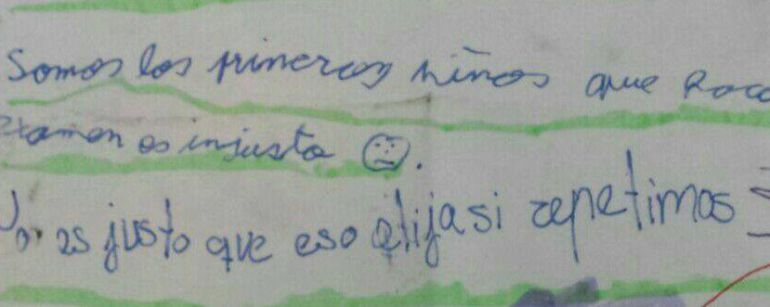 Somos los primeros niños que
examen es injusto
No es justo que eso elija si repetimos